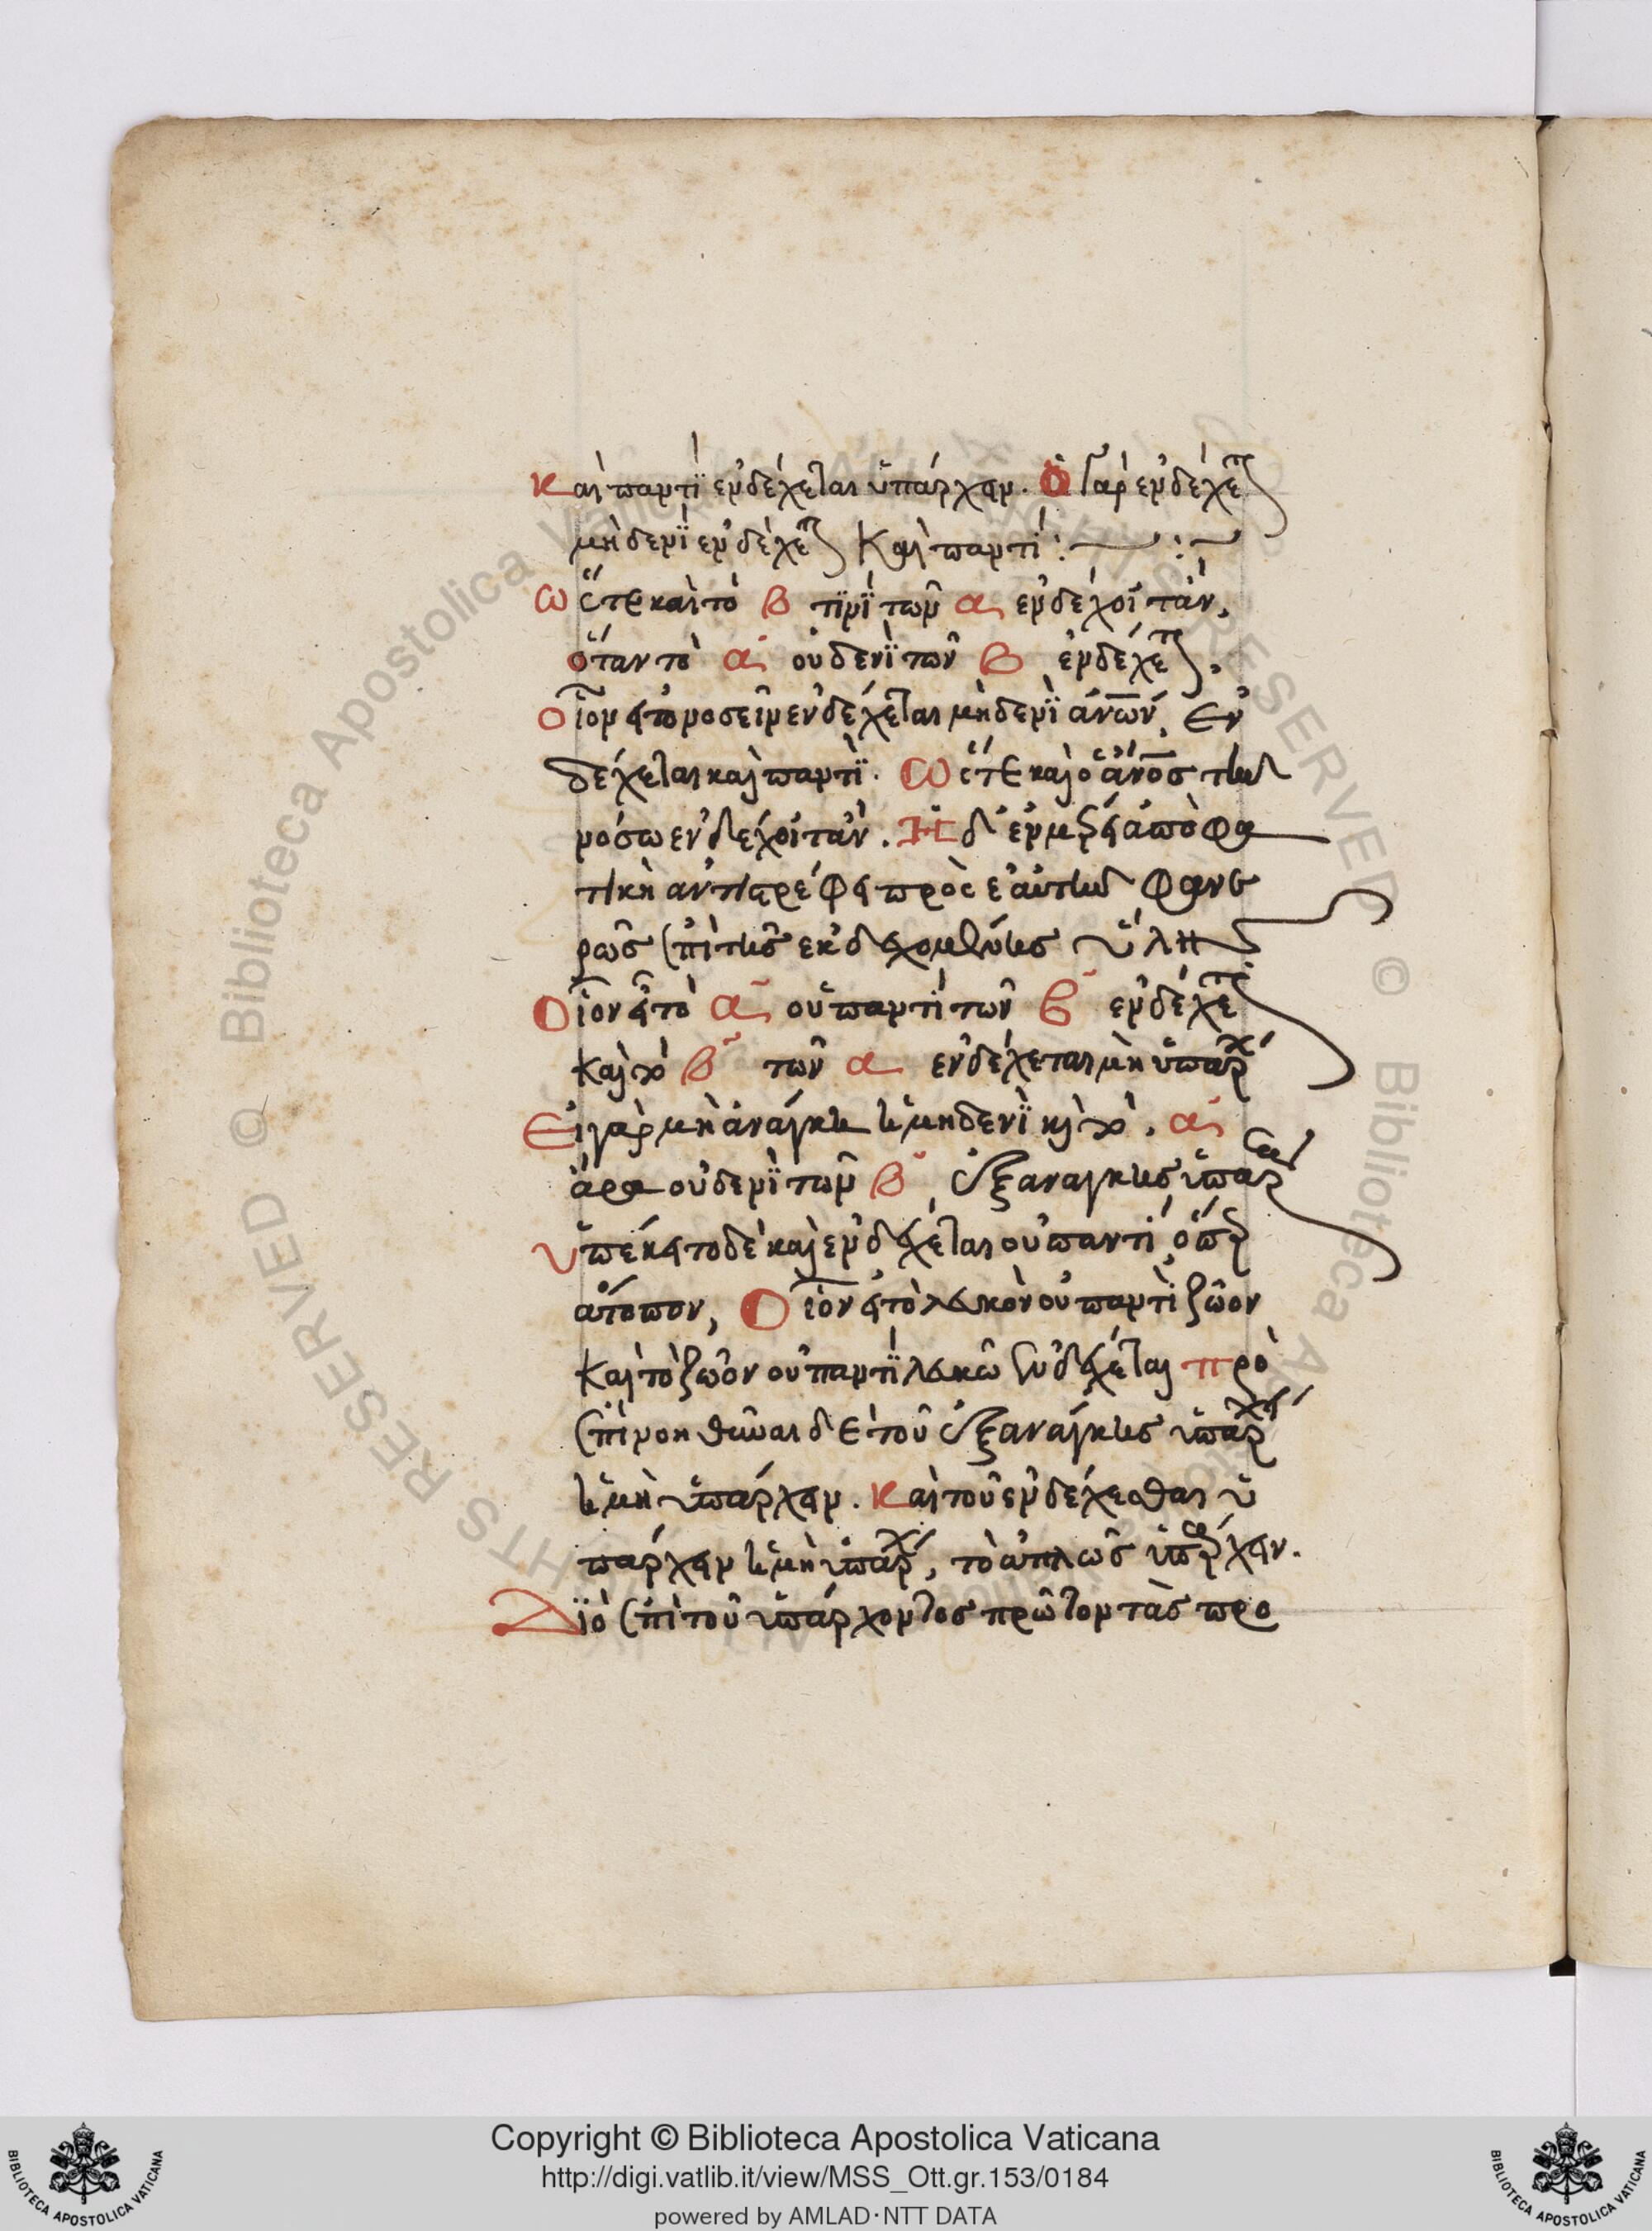 καὶ παντὶ ἐνδέχεται ὑπάρχειν. Ὃ γὰρ ἐνδέχεται
μηδενὶ ἐνδέχεται Καὶ παντί :
Ὥστε καὶ τὸ β τινὶ τῶν α ἐνδέχοιτ' ἄν,
ὅταν τὸ α οὐδενὶ τῶν β ἐνδέχεται,
Οἷον εἰ τὸ νοσεῖν ἐνδέχεται μηδενὶ ἀνῶν, Ἐν
δέχεται καὶ παντί. Ὥστε καὶ ὁ ἀνος τῶ
νόσω ἐνδέχοιτ' ἄν. Ἡ δ' ἐν μέρει ἀποφα
τικὴ ἀντιστρέφει πρὸς ἑαυτὴν φανε
ρῶς ἐπὶ τῆς ἐκδεχομένης ὕλης
Οἷον εἰ τὸ α οὐ παντὶ τῶν β ἐνδέχεται
καὶ τὸ β τῶν α ἐνδέχεται μὴ ὑπάρχειν
Εἰ γὰρ μὴ ἀνάγκη ἢ μηδενὶ καὶ τὸ. α
ἄρα οὐδενὶ τῶν β, ἐξ ἀνάγκης ὑπάρχει
ὑπέκειτο δὲ καὶ ἐνδέχεται οὐ παντί, ὅπερ
ἄτοπον, Οἷον εἰ τὸ λευκὸν οὐ παντὶ ζῶον
Καὶ τὸ ζῶον οὐ παντὶ λευκῶ ἐνδέχεται προ
ἐπινοηθῆναι δὲ τοῦ ἐξ ἀνάγκης ὑπάρχειν
ἢ μὴ ὑπάρχειν. καὶ τοῦ ἐνδέχεσθαι ὑ
πάρχειν ἢ μὴ ὑπάρχειν, τὸ ἁπλῶς ὑπάρχειν.
Διὸ ἐπὶ τοῦ ὑπάρχοντος πρῶτον τὰς προ
Copyright © Biblioteca Apostolica Vaticana
http://digi.vatlib.it/view/MSS_Ott.gr.153/0184
powered by AMLAD·NTT DATA